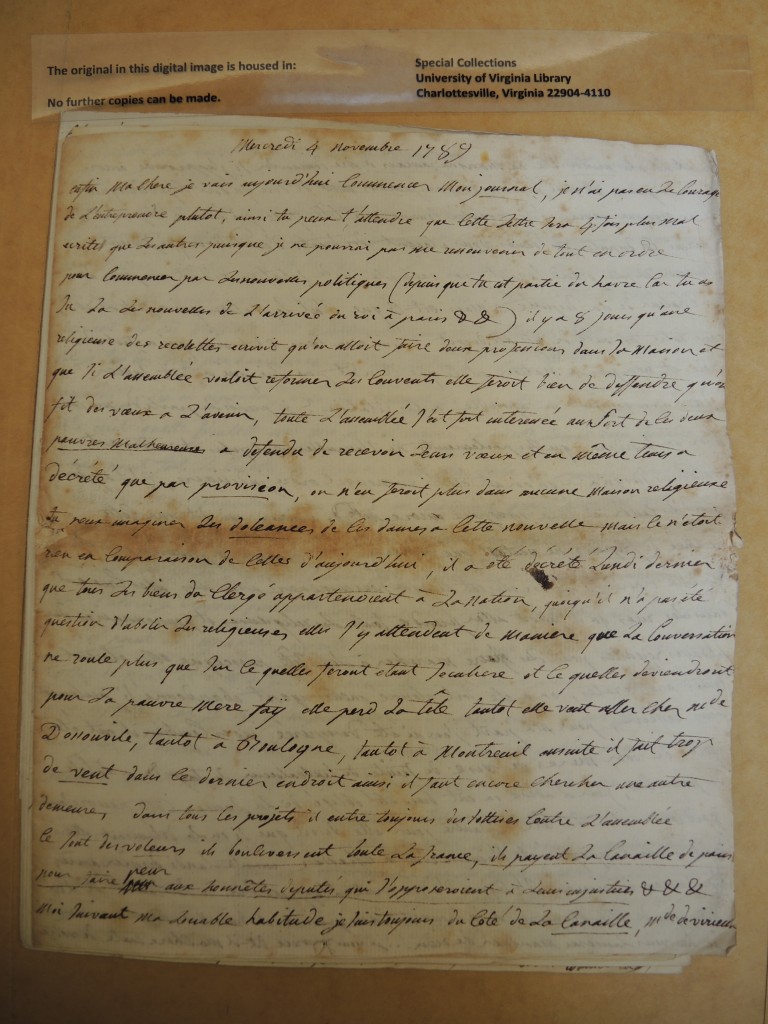 The original in this digital image is housed in:
Special Collections
University of Virginia Library
No further copies can be made.
Charlottesville, Virginia 22904-4110
Mercredi 4 novembre 1789
enfin Ma chere je vais aujourd'hui Commencer Mon journal, je n'ai pas eu le Courage
de L'entreprendre plutot, ainsi tu peux t'attendre que Cette Lettre sera 4 fois plus mal
ecrite que Les autres puisque je ne pourrai pas me ressouvenir de tout en ordre
pour Commencer par Les nouvelles politiques (depuis que tu est partie du havre Car tu as
Lu La Les nouvelles de L'arrivée du roi à paris & &) il y a 8 jours qu'une
religieuse des recolettes ecrivit qu'on alloit faire deux professions dans La Maison et
que si L'assemblée vouloit reformer Les Couvents elle feroit bien de deffendre qu'on
fit des vœux a L'avenir, toute L'assemblée s'est fort interessée au Sort de Ces deux
pauvres Malheureuses a defendu de recevoir Leurs vœux et en même temps a
décrété que par provision, on n'en feroit plus dans aucune Maison religieuse
tu peux imaginer Les doleances de Ces dames a Cette nouvelle mais Ce n'etoit
rien en Comparaison de Celles d'aujourd'hui, il a été décrété Lundi dernier
que tous Les biens du Clergé appartenoient à La Nation, jusqu'il n'a pas été
question d'abolir Les religieuses elles s'y attendent de Maniere que La Conversation
ne roule plus que sur Ce quelles feront etant et Ce quelles deviendront
pour La pauvre Mere faÿ elle perd La tête tantot elle veut aller Chez Mde de
tantot à Boulogne, tantot à Montreuil ensuite il fait trop
de vent dans Ce dernier endroit ainsi il faut encore Chercher une autre
demeure, dans tous Ces projets il entre toujours des sottises Contre L'assemblée
Ce sont des voleurs ils bouleversent toute La france, ils payent La Canaille de paris
pour faire peur aux honnêtes deputés qui s'opposeroient à Leurs injustices & & &
Moi suivant ma Louable habitude je suis toujours du Coté de La Canaille, Mde de